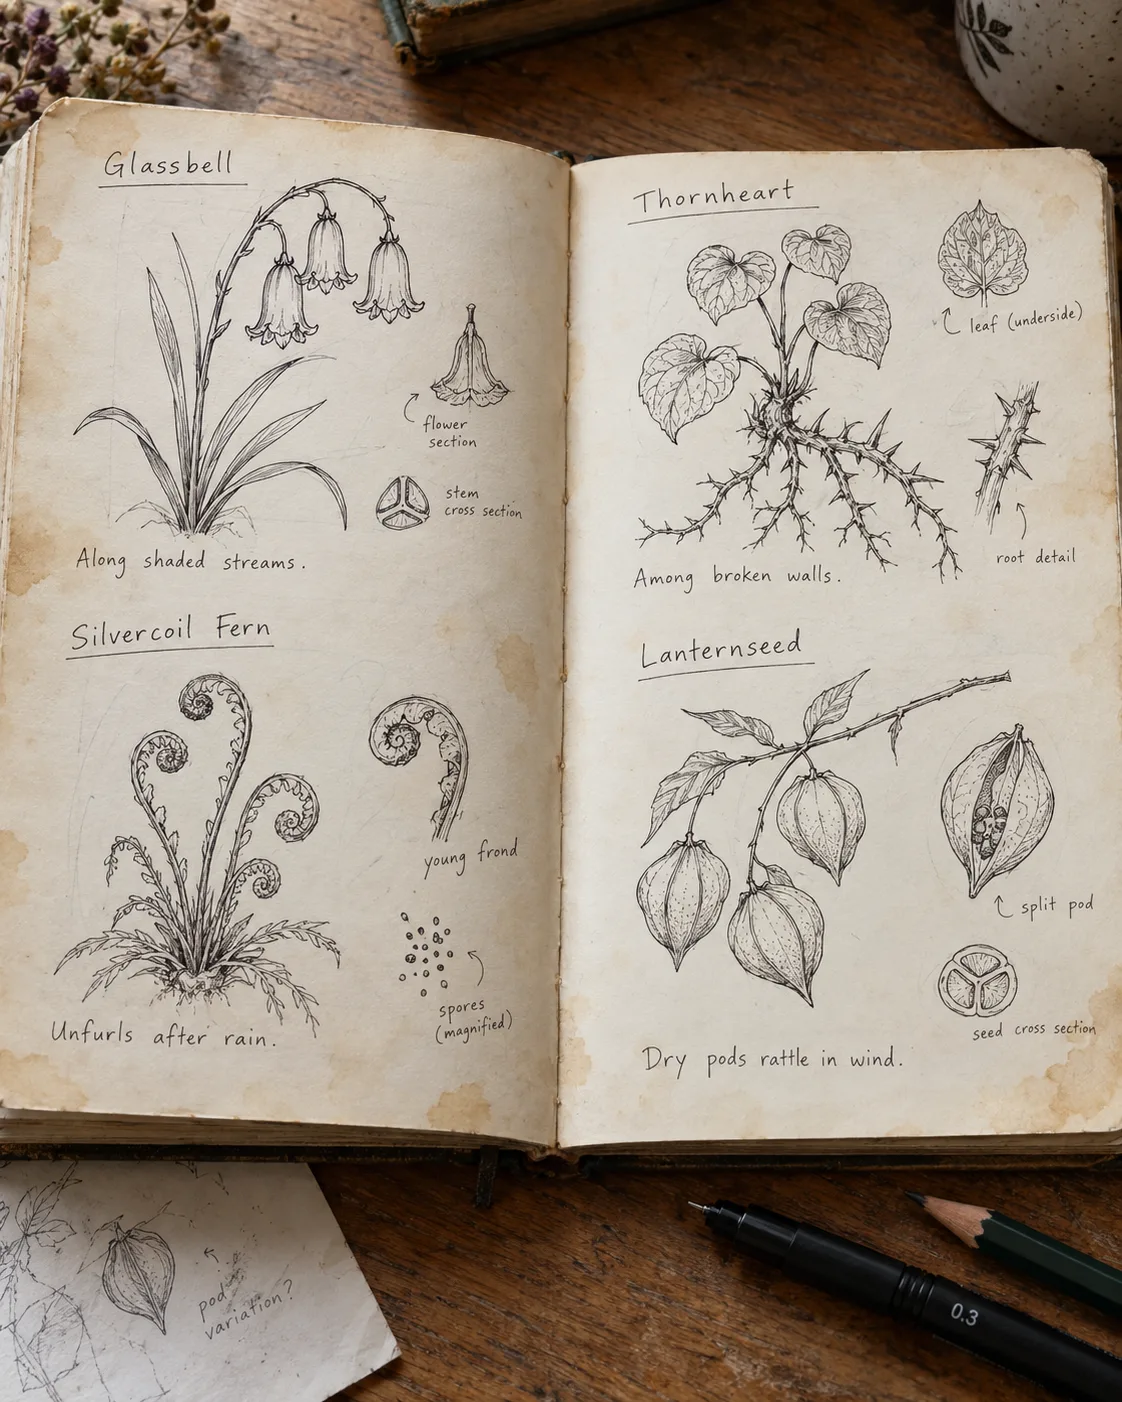 Glassbell
flower
section
stem
cross section
Along shaded streams.
Silvercoil Fern
young frond
spores
(magnified)
Unfurls after rain.
Thornheart
leaf (underside)
root detail
Among broken walls.
Lanternseed
split pod
seed cross section
Dry pods rattle in wind.
pod
variation?
0.3